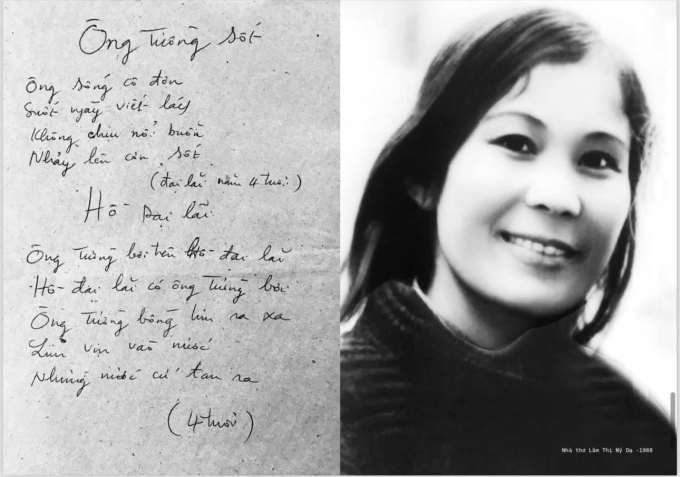 Ông Tường sốt
Ông sống cô đơn
Suốt ngày viết lách
Không chịu nổi buồn
Nhảy lên cơn sốt
(đại lải năm 4 tuổi)
Hồ Đại lải
Ông Tường bơi trên Hồ đại lải
Hồ đại lải có ông Tường bơi
Ông Tường bỗng lìm ra xa
Lìm vịn vào nước
Nhưng nước cứ tan ra
(4 tuổi)
Nhà thơ Lâm Thị Mỹ Dạ -1988